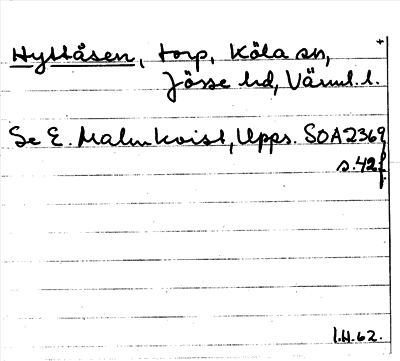 Hyttåsen, torp, Köla sn,
Jösse hd, Värml. l.
Se E. Malmkvist, Upps. SOA 2369
s. 42 f
I.H. 62.